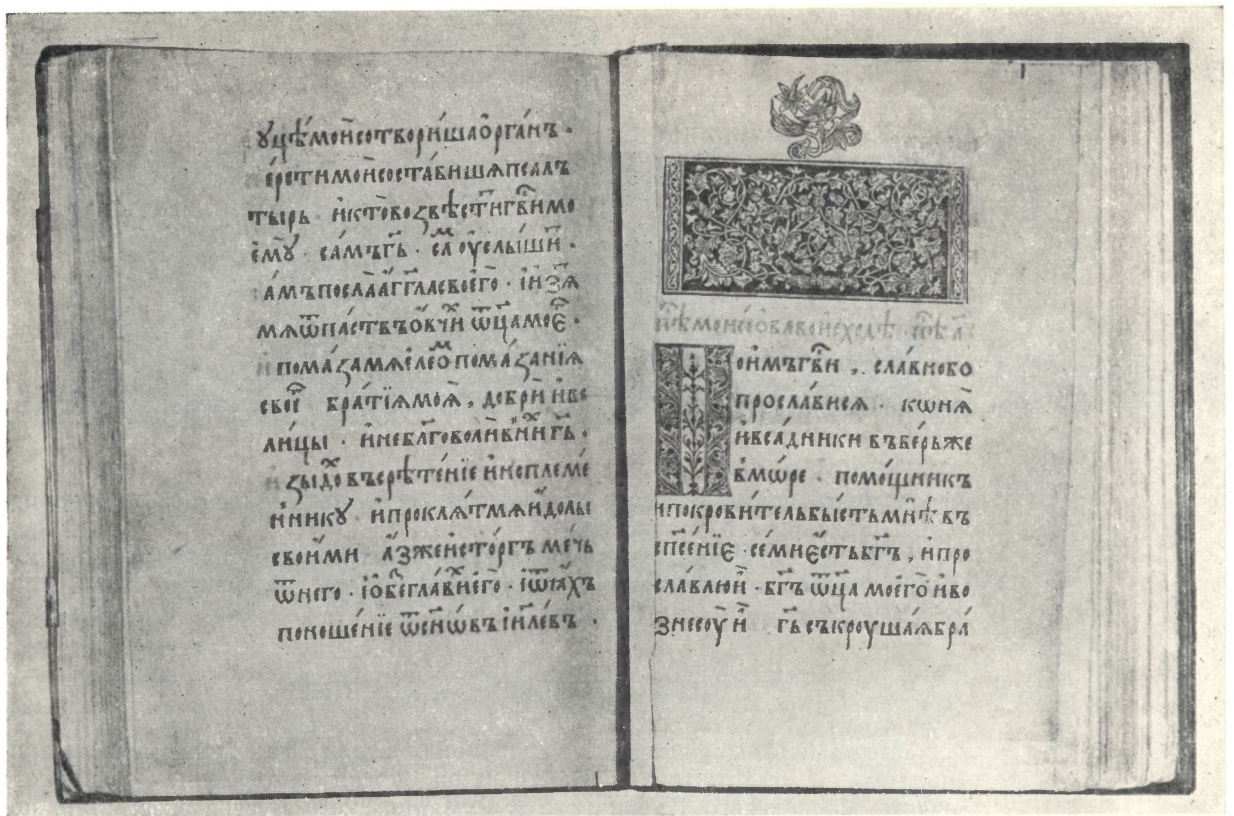 ꙋцѣ́мои҆сотвори́шаѻ҆рга́нъ ·
пе́рстимои҆соста́вишѧпсал
тырь и҆кто̀возвѣсти́тъгв҃имо
емꙋ̀ · са́мъгь҃ · са́мъ ᲂу҆слы́ши ·
са́мъпосла̀а҆́гг҃ласвоего̀ · і҆изѧ́
мѧѿпа́ствъѻ҆́вчиⷯ ѿц҃амоеѐ ·
и҆ пома́замѧелеѡⷨ пома́занїѧ
своегѡ̀ бра́тїѧмоѧ̀ , до́бри и҆ве
ли́цы · и҆неблг҃оволи́вниⷯ гь҃ ·
и҆зыдо́ⷯ въсрѣ́те́нїе и҆ноплеме́
нникꙋ и҆проклѧ́тмѧи҆́долы
свои́ми а҆́зжеи҆сто́ргъ ме́чь
ѿнего̀ · і҆ѻбезгла́вихего̀ · і҆ѿѧхъ
поноше́нїе ѿсн҃ѡ́въ і҆и҃левъ ·
пѣ́ моисе́ѻва во и҆схо́дѣ
Поимъгв҃и ,. сла́внобо
просла́висѧ · кѡнѧ̀
и҆вса́дники въве́рьже
вмѡ́ре · помо́щникъ
ипокрови́тельбы́стьмнѣ̀ въ
спс҃е́нїе · се́мие́стьбг҃ъ , и҆про
сла́влюи҆̀ · бг҃ъ ѿц҃а моего̀ и҆во
знесоу̀ и҆̀ гь҃ съкроуша́ѧбра́